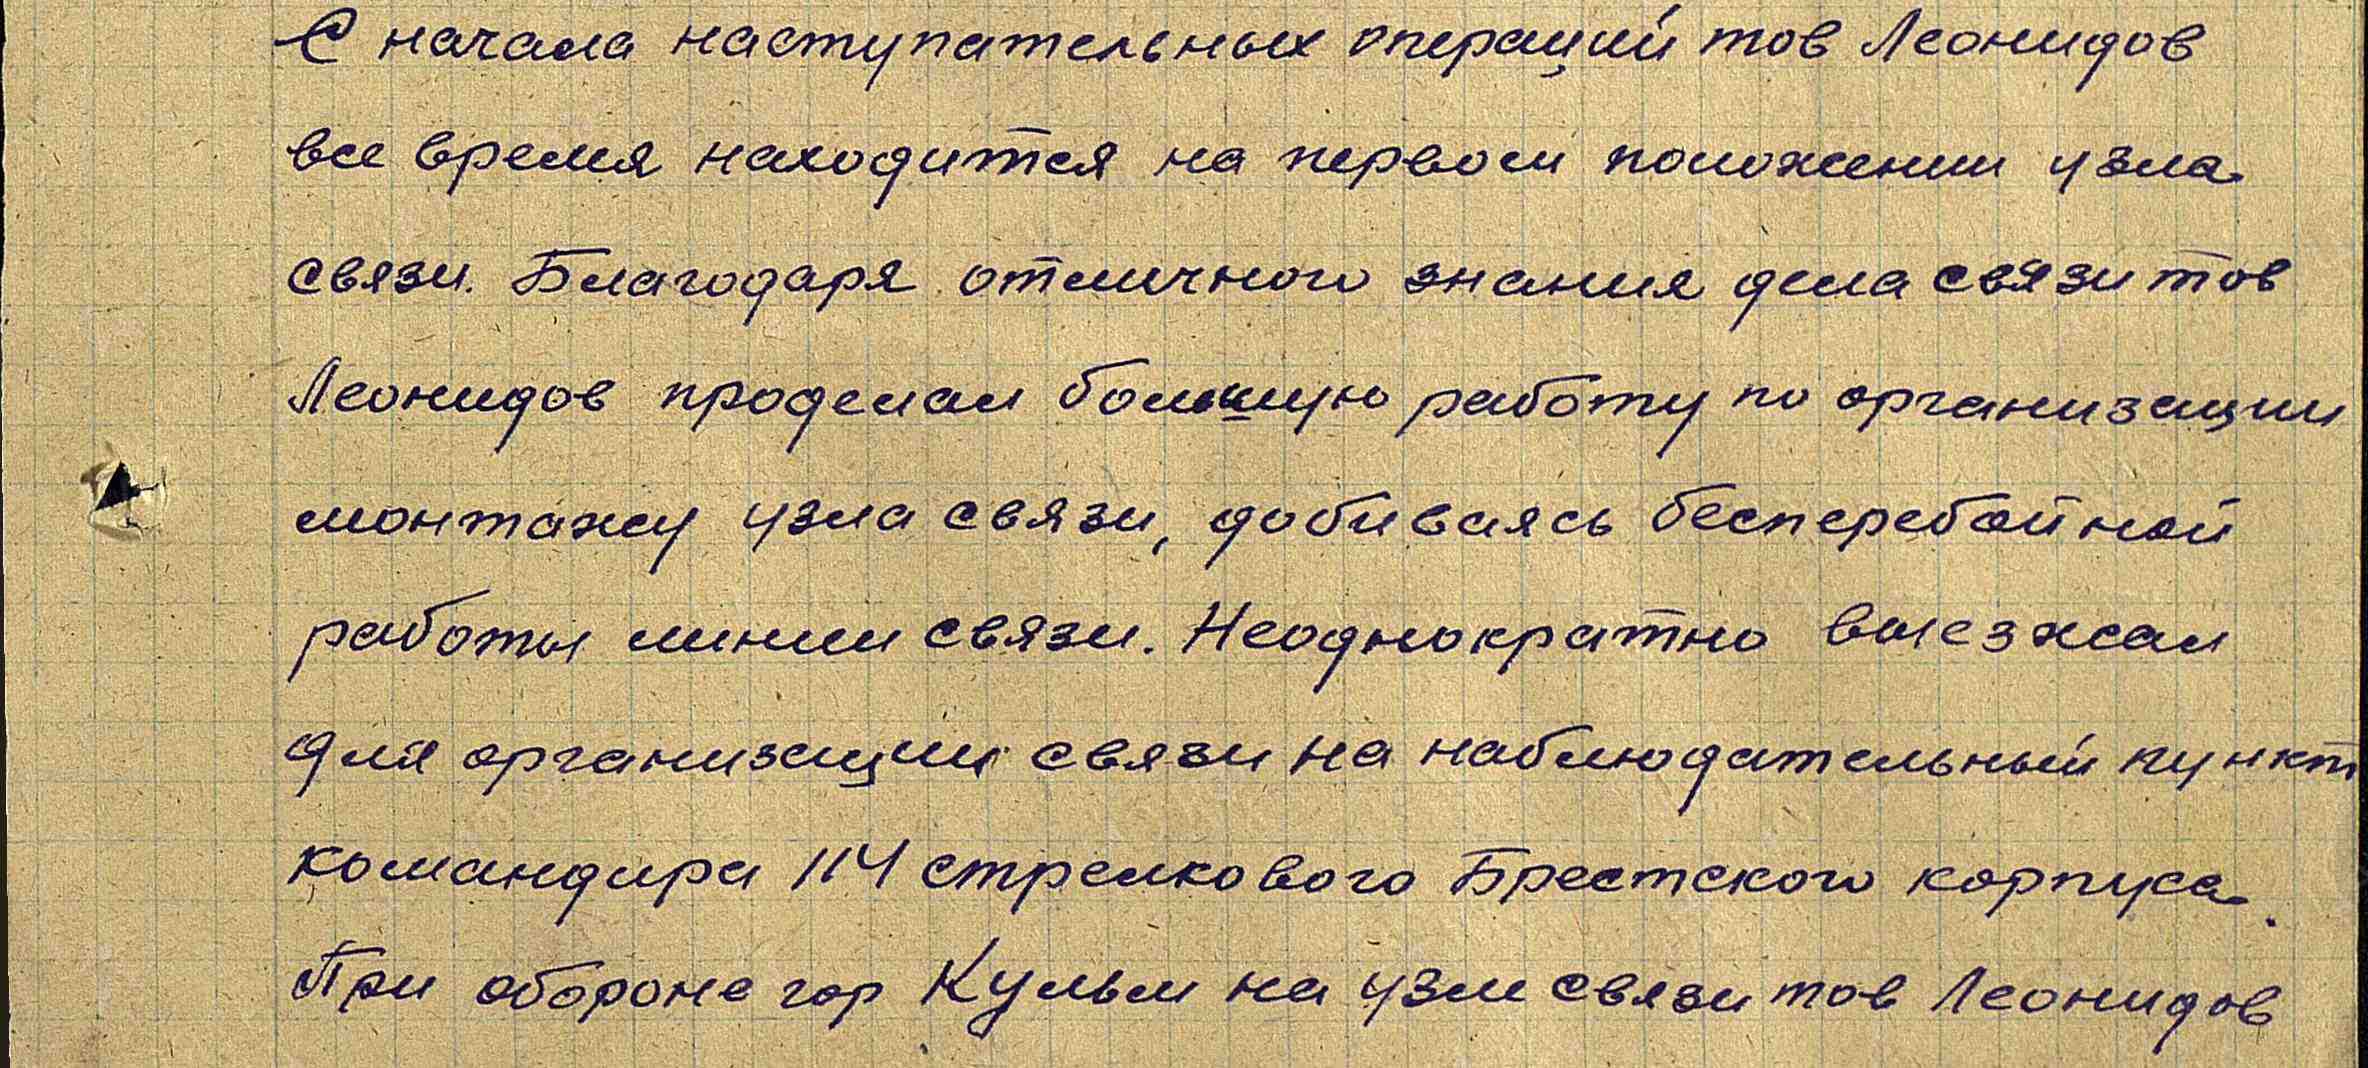 С начала наступательных операций тов Леонидов
все время находится на первом положении узла
связи. Благодаря отличного знания дела связи тов
Леонидов проделал большую работу по организации
монтажу узла связи, добиваясь бесперебойной
работы линии связи. Неоднократно выезжал
для организации связи на наблюдательный пункт
командира 114 стрелкового Брестского корпуса.
При обороне гор Кульм на узле связи тов Леонидов